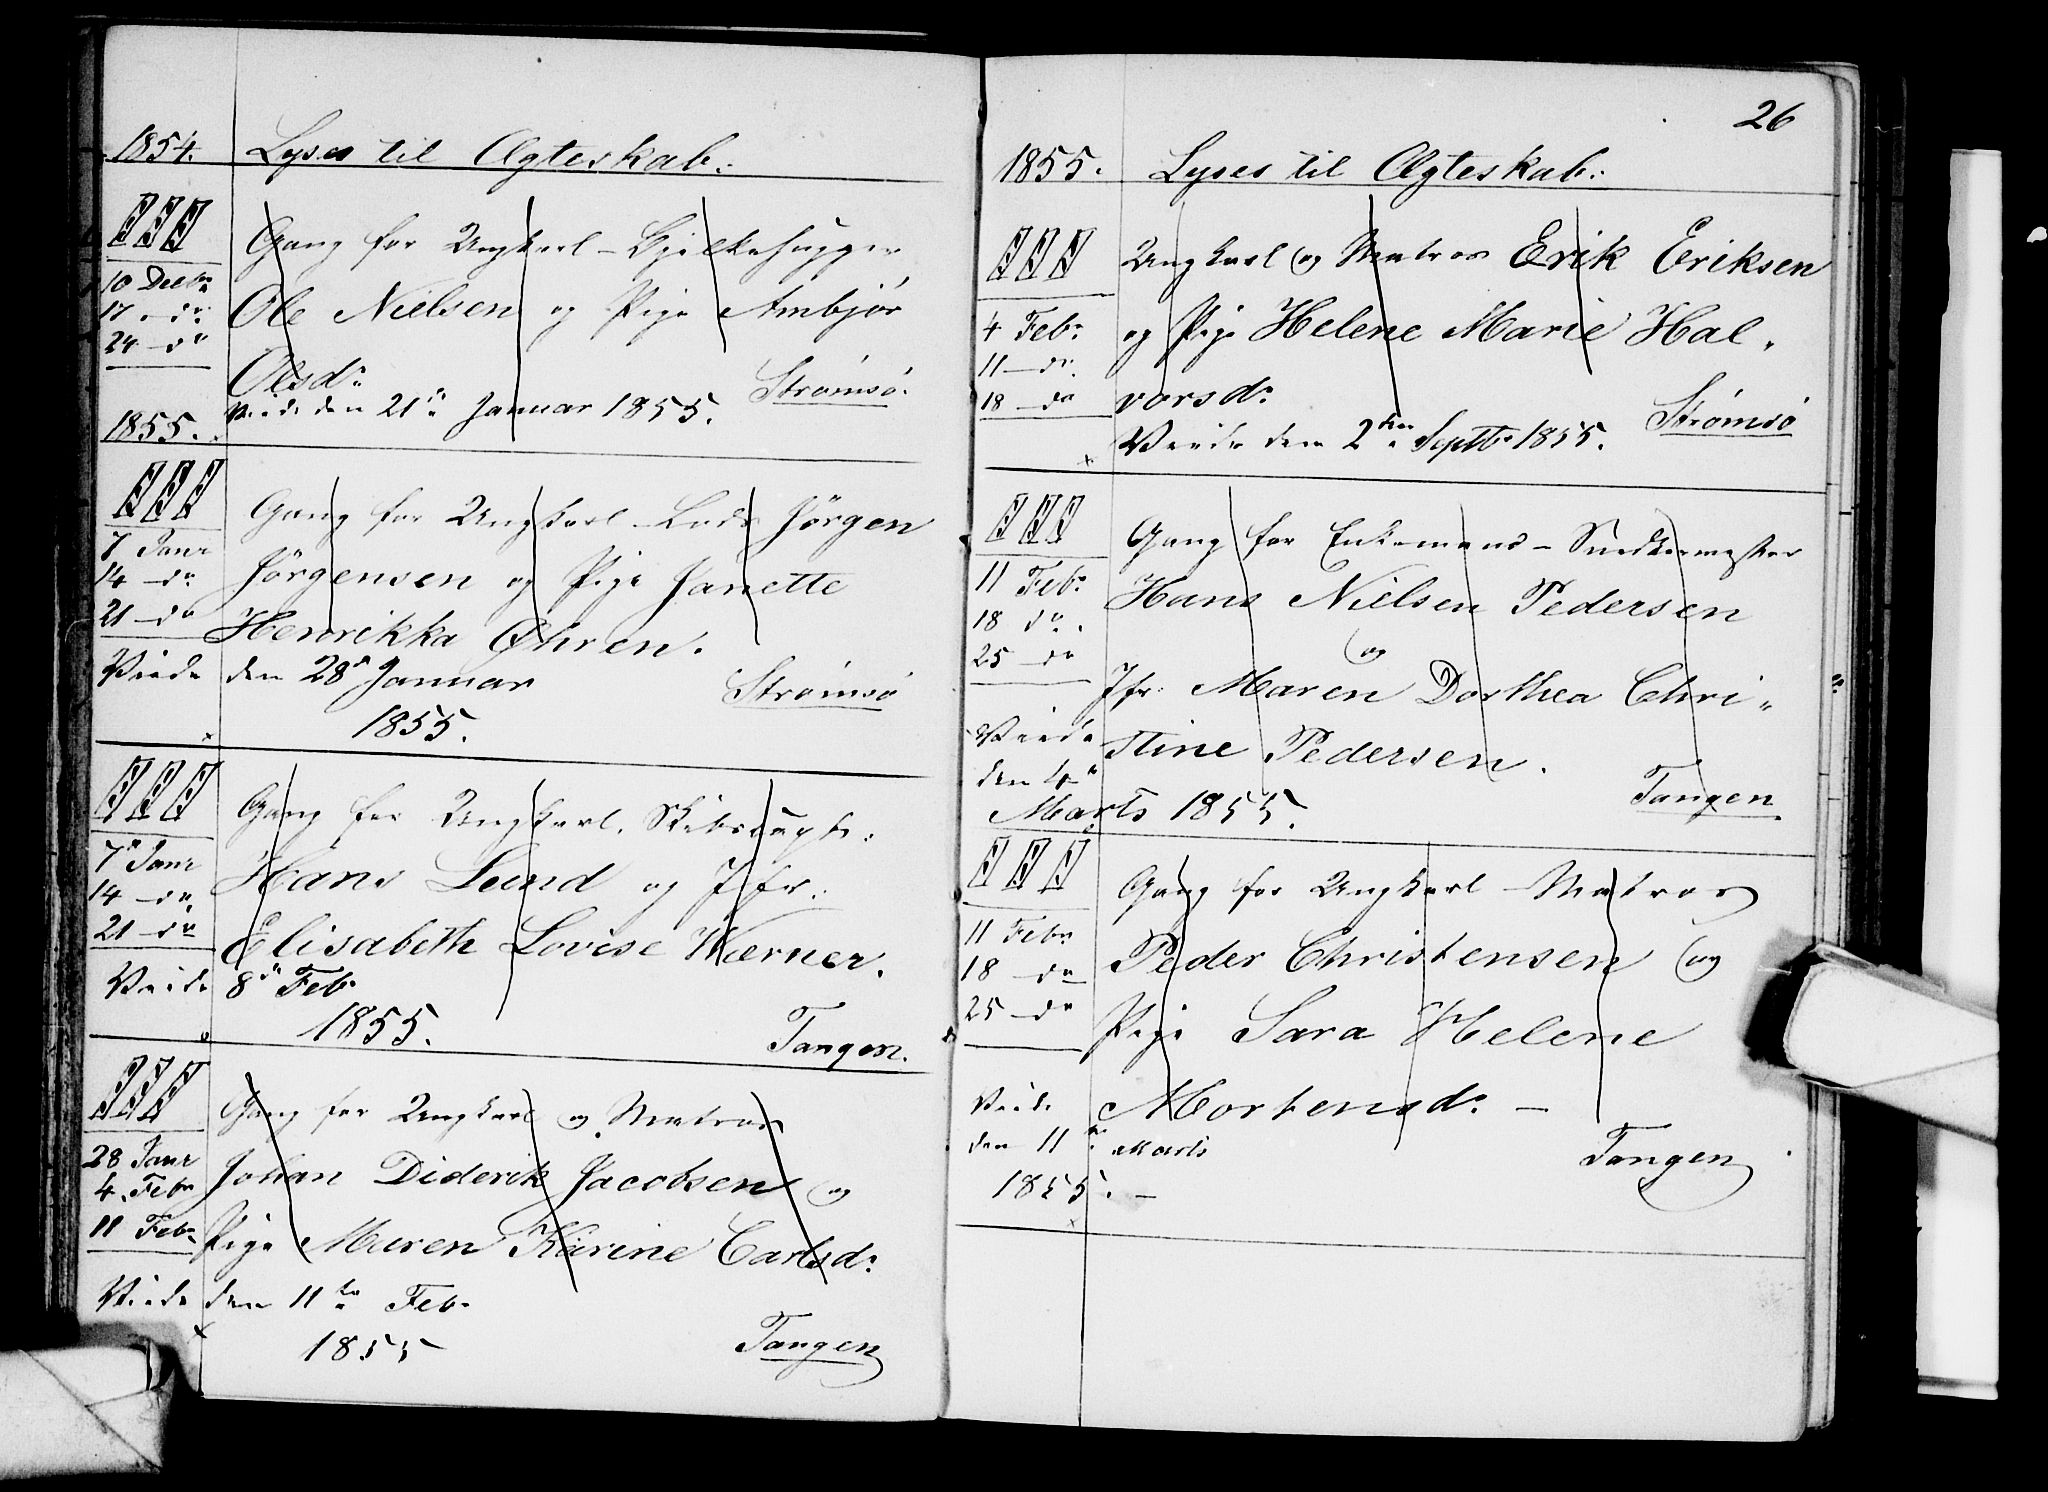 1854. Lyses til Ægteskab:
Gang for Ungkarl - Bjelkehugger
10 Decbr
Ole Nielsen og Pige Ambjör
17. do
24 - do
Olsdr
Strømsö.
Viede den 21de Januar 1855.
1855.
Gang for Ungkarl - Lods Jörgen
7 Janr
Jörgensen og Pige Janette
14 - do
21 - do
Henrikka Öhren.
Viede den 28de Januar
Strømsö
1855.
Gang for Ungkarl. Skibscapt:
7de Janr
Hans Lund og Jfr:
14 - do
21 - do
Elisabeth Lovise Wærner.
Viede 8de Feb.
1855.
Tangen.
Gang for Ungkarl og Matros
28 Janr
Johan Diderik Jacobsen og
4. Febr
11 Febr
Pige Maren Karine Carlsdr
Viede den 11te Feb.
1855
Tangen
26
1855. Lyses til Ægteskab:
Ungkarl og Matros Erik Eriksen
4 Febr
og Pige Helene Marie Hal-
11 - do
18 - do
vorsdr
Strömsö
Viede den 2den Septbr 1855.
Gang for Enkemand - Snedkermester
11 Febr
Hans Nielsen Pedersen
18 do.
og
25 - do
Jfr. Maren Dorthea Chri-
Viede
stine Pedersen.
den 4de
Tangen
Marts 1855.
Gang for Ungkarl - Matros
11 Febr
Peder Christensen og
18 - do
25 - do
Pige Sara Helene
Viede
Mortensdr. -
den 11te Marts
Tangen
1855. -